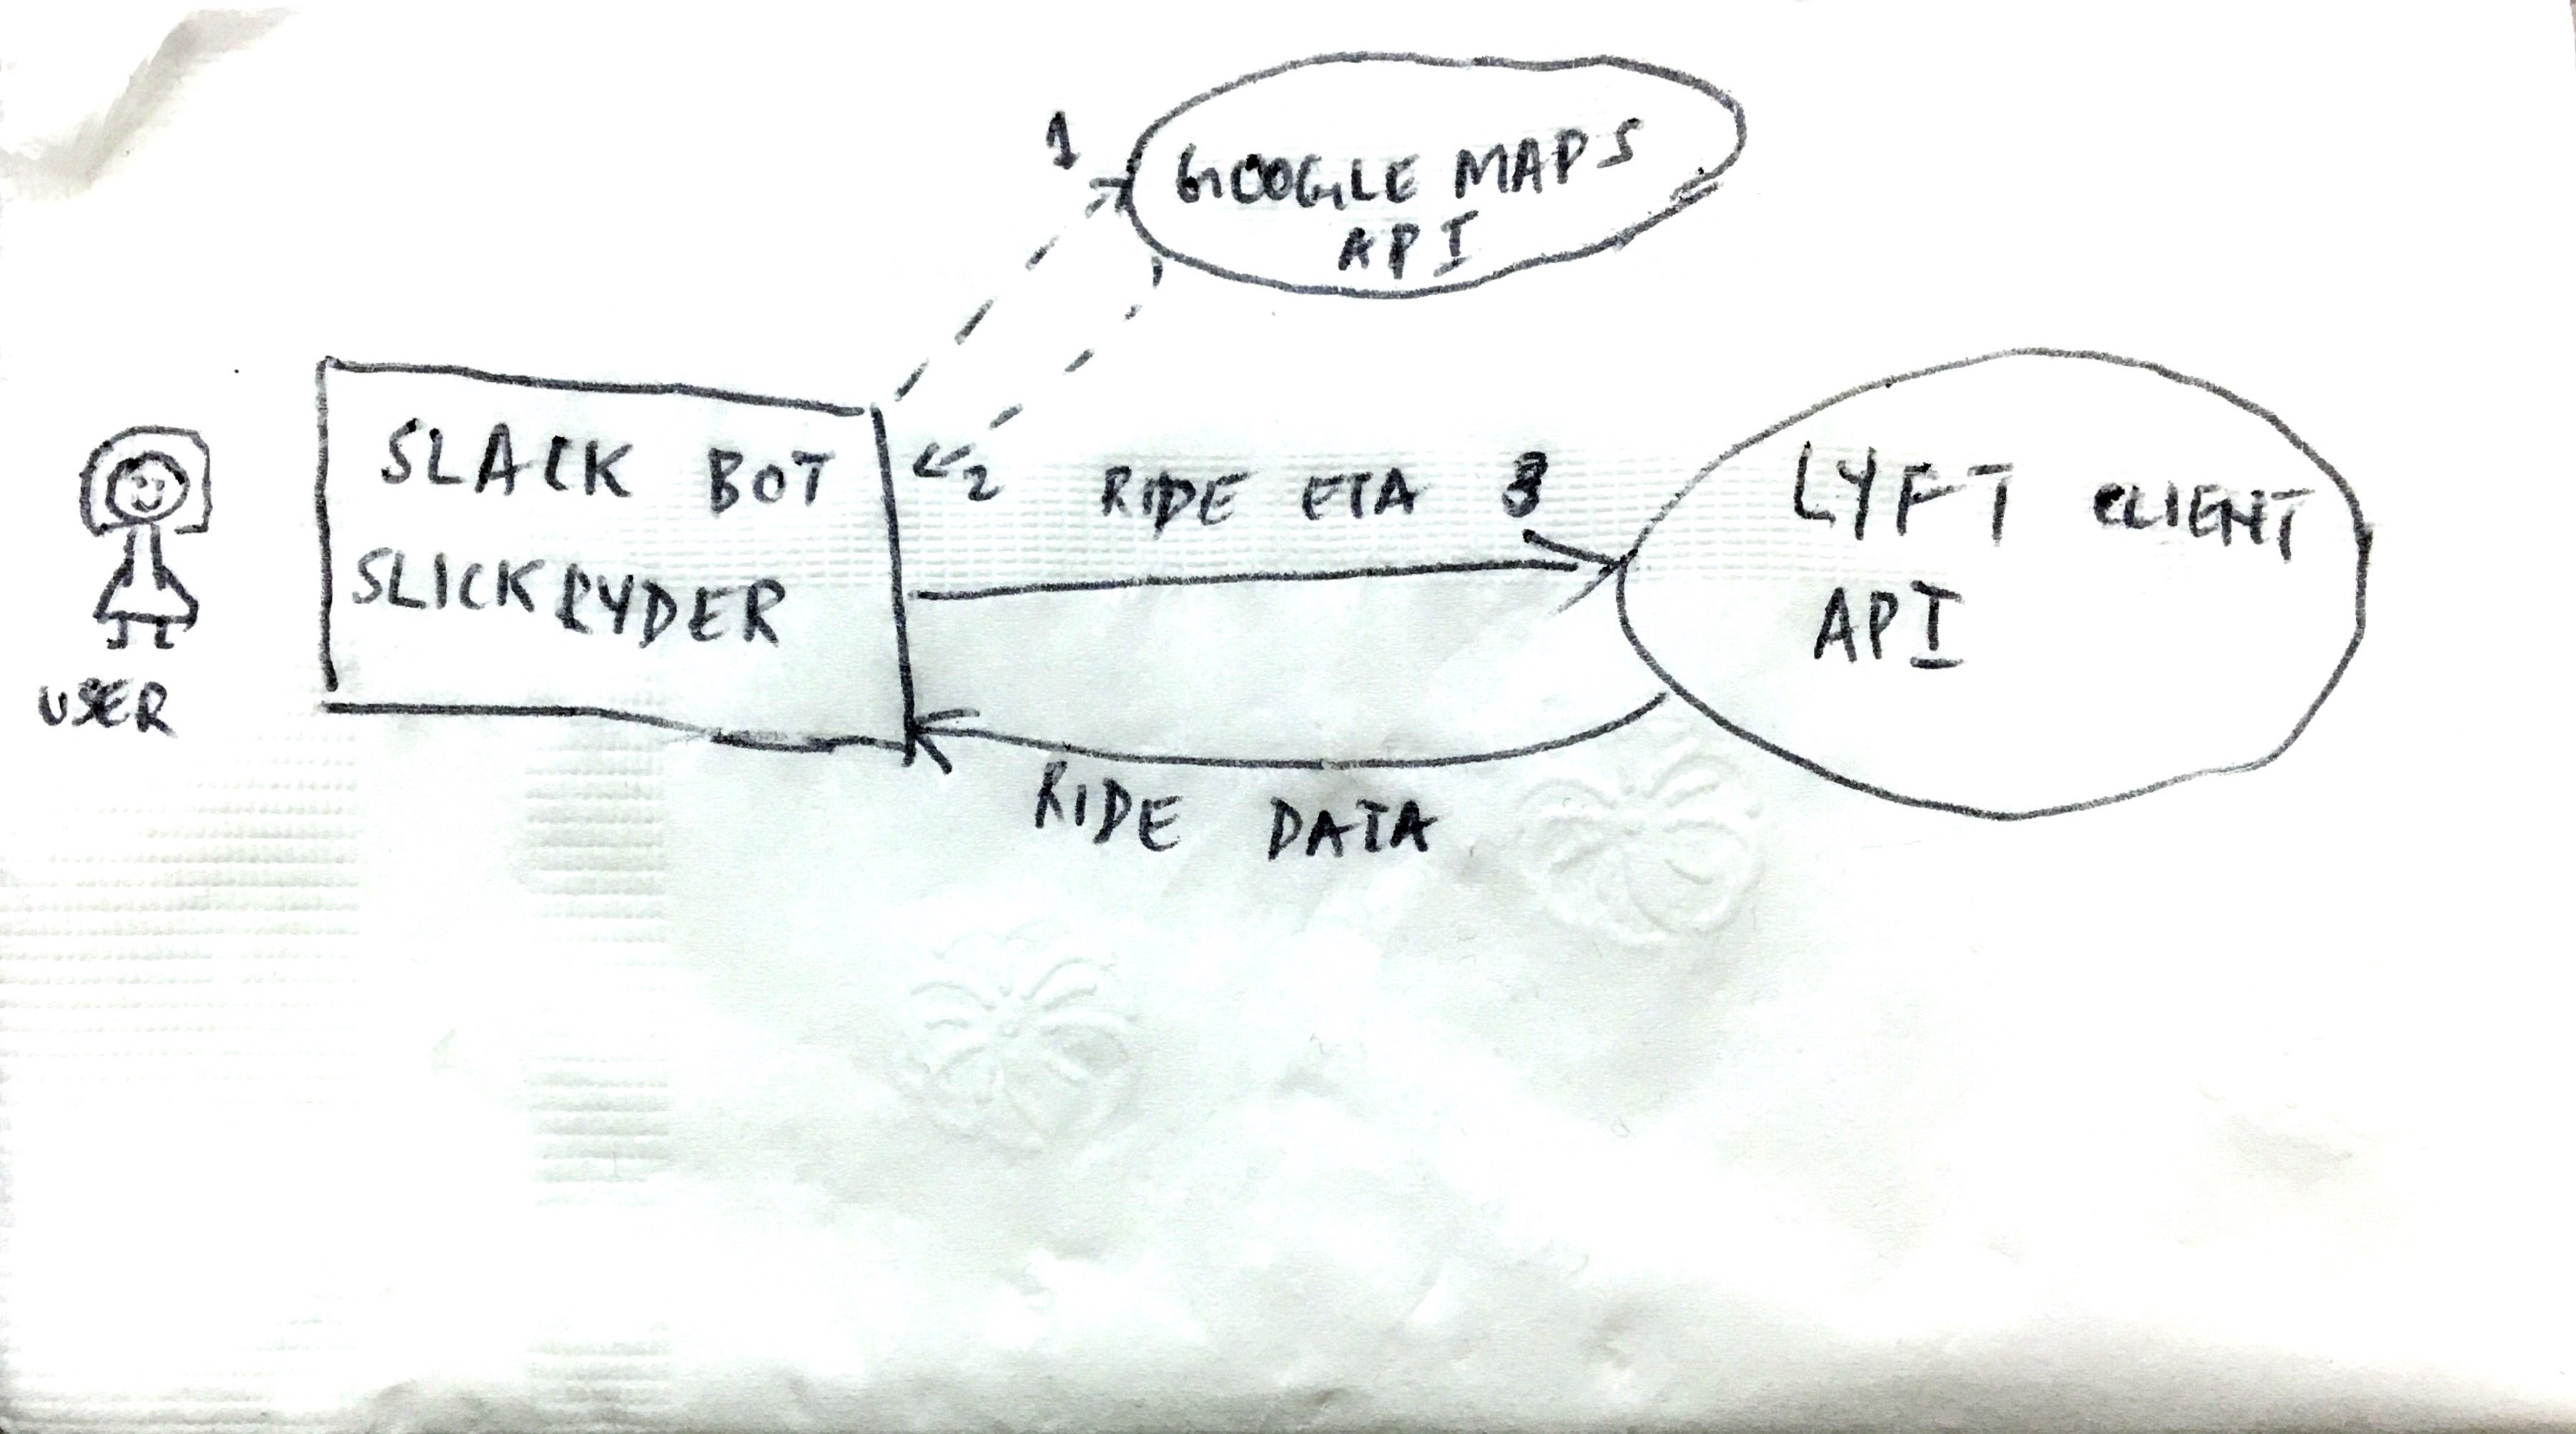 1
GOOGLE MAPS
API
SLACK BOT
SLICKRYDER
2
RIDE ETA 3
LYFT CLIENT
API
USER
RIDE DATA